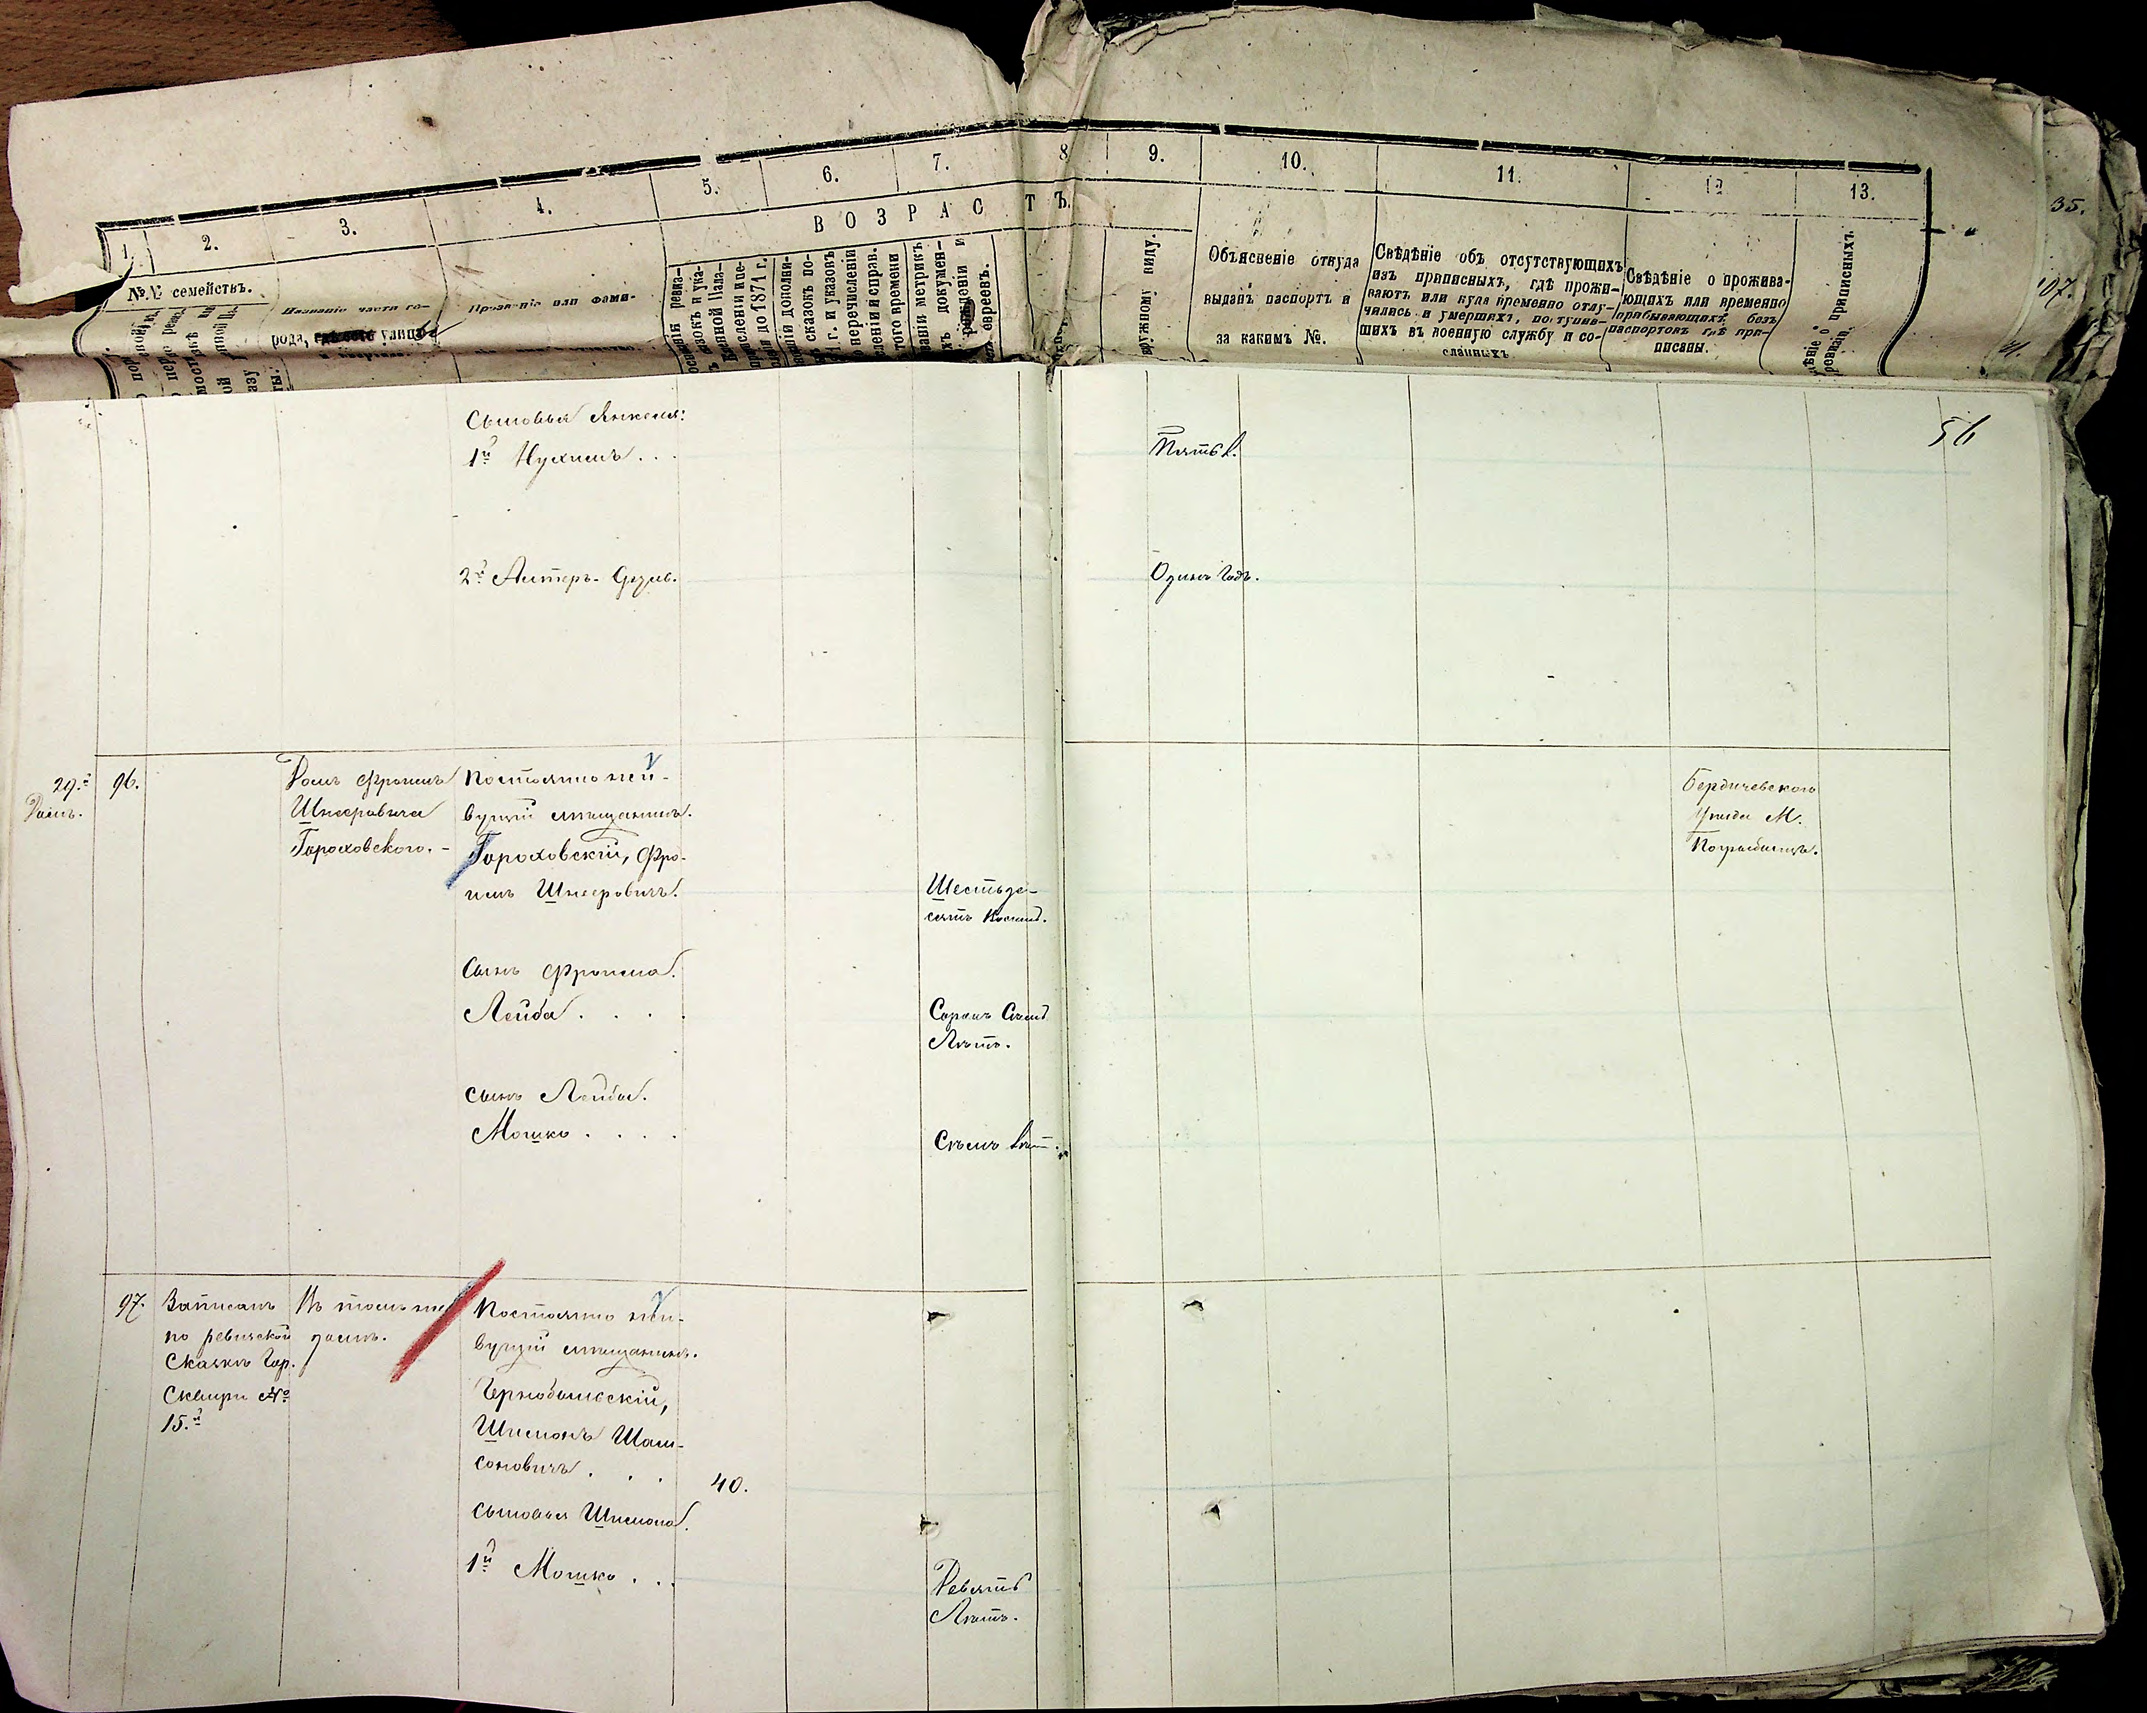 1. 2. 3. 4. 5. 6. 7. 8 9. 10. 11. 12 13.
35.
ВОЗРАСТЪ.
№№ семействъ.
Названіе части го-
рода, улицы
Прозваніе или фами-
Объясненіе откуда
выданъ паспортъ и
за какимъ №.
Свѣдѣніе объ отсутствующихъ
изъ приписныхъ, гдѣ прожи-
ваютъ или куда временно отлу-
чились и умершихъ, поступив-
шихъ въ военную службу и со-
сланныхъ
Свѣдѣніе о прожива-
ющихъ или временно
прибывающихъ безъ
паспортовъ гдѣ при-
писаны.
приписныхъ.
наружному виду.
евреевъ.
107.
56
Сыновья Янкеля:
1й Нухимъ . . .
Пять л.
2й Алтеръ-
Одинъ годъ.
29й
Домъ.
96.
Домъ Фроима
Шнееровича
Гороховского. -
Постоянно жи-
вущій мѣщанинъ.
Гороховскій, Фро-
имъ Шнееровичъ.
Шестьде-
сятъ восемь.
Бердичевского
уѣзда М.
Погребищъ.
Сынъ Фроима.
Лейба . . . .
Сорокъ семь
Лѣтъ.
Сынъ Лейбы.
Мошко . . . .
Семь лѣт.
97.
Записанъ
по ревизской
Сказкѣ гор.
Сквиры №
15.й
Въ томъ же
домѣ.
Постоянно жи-
вущій мѣщанинъ.
Чернобыльскій,
Шимонъ Шам-
соновичъ . . .
40.
Сыновья Шимона.
1й Мошко . . .
Девять
Лѣтъ.